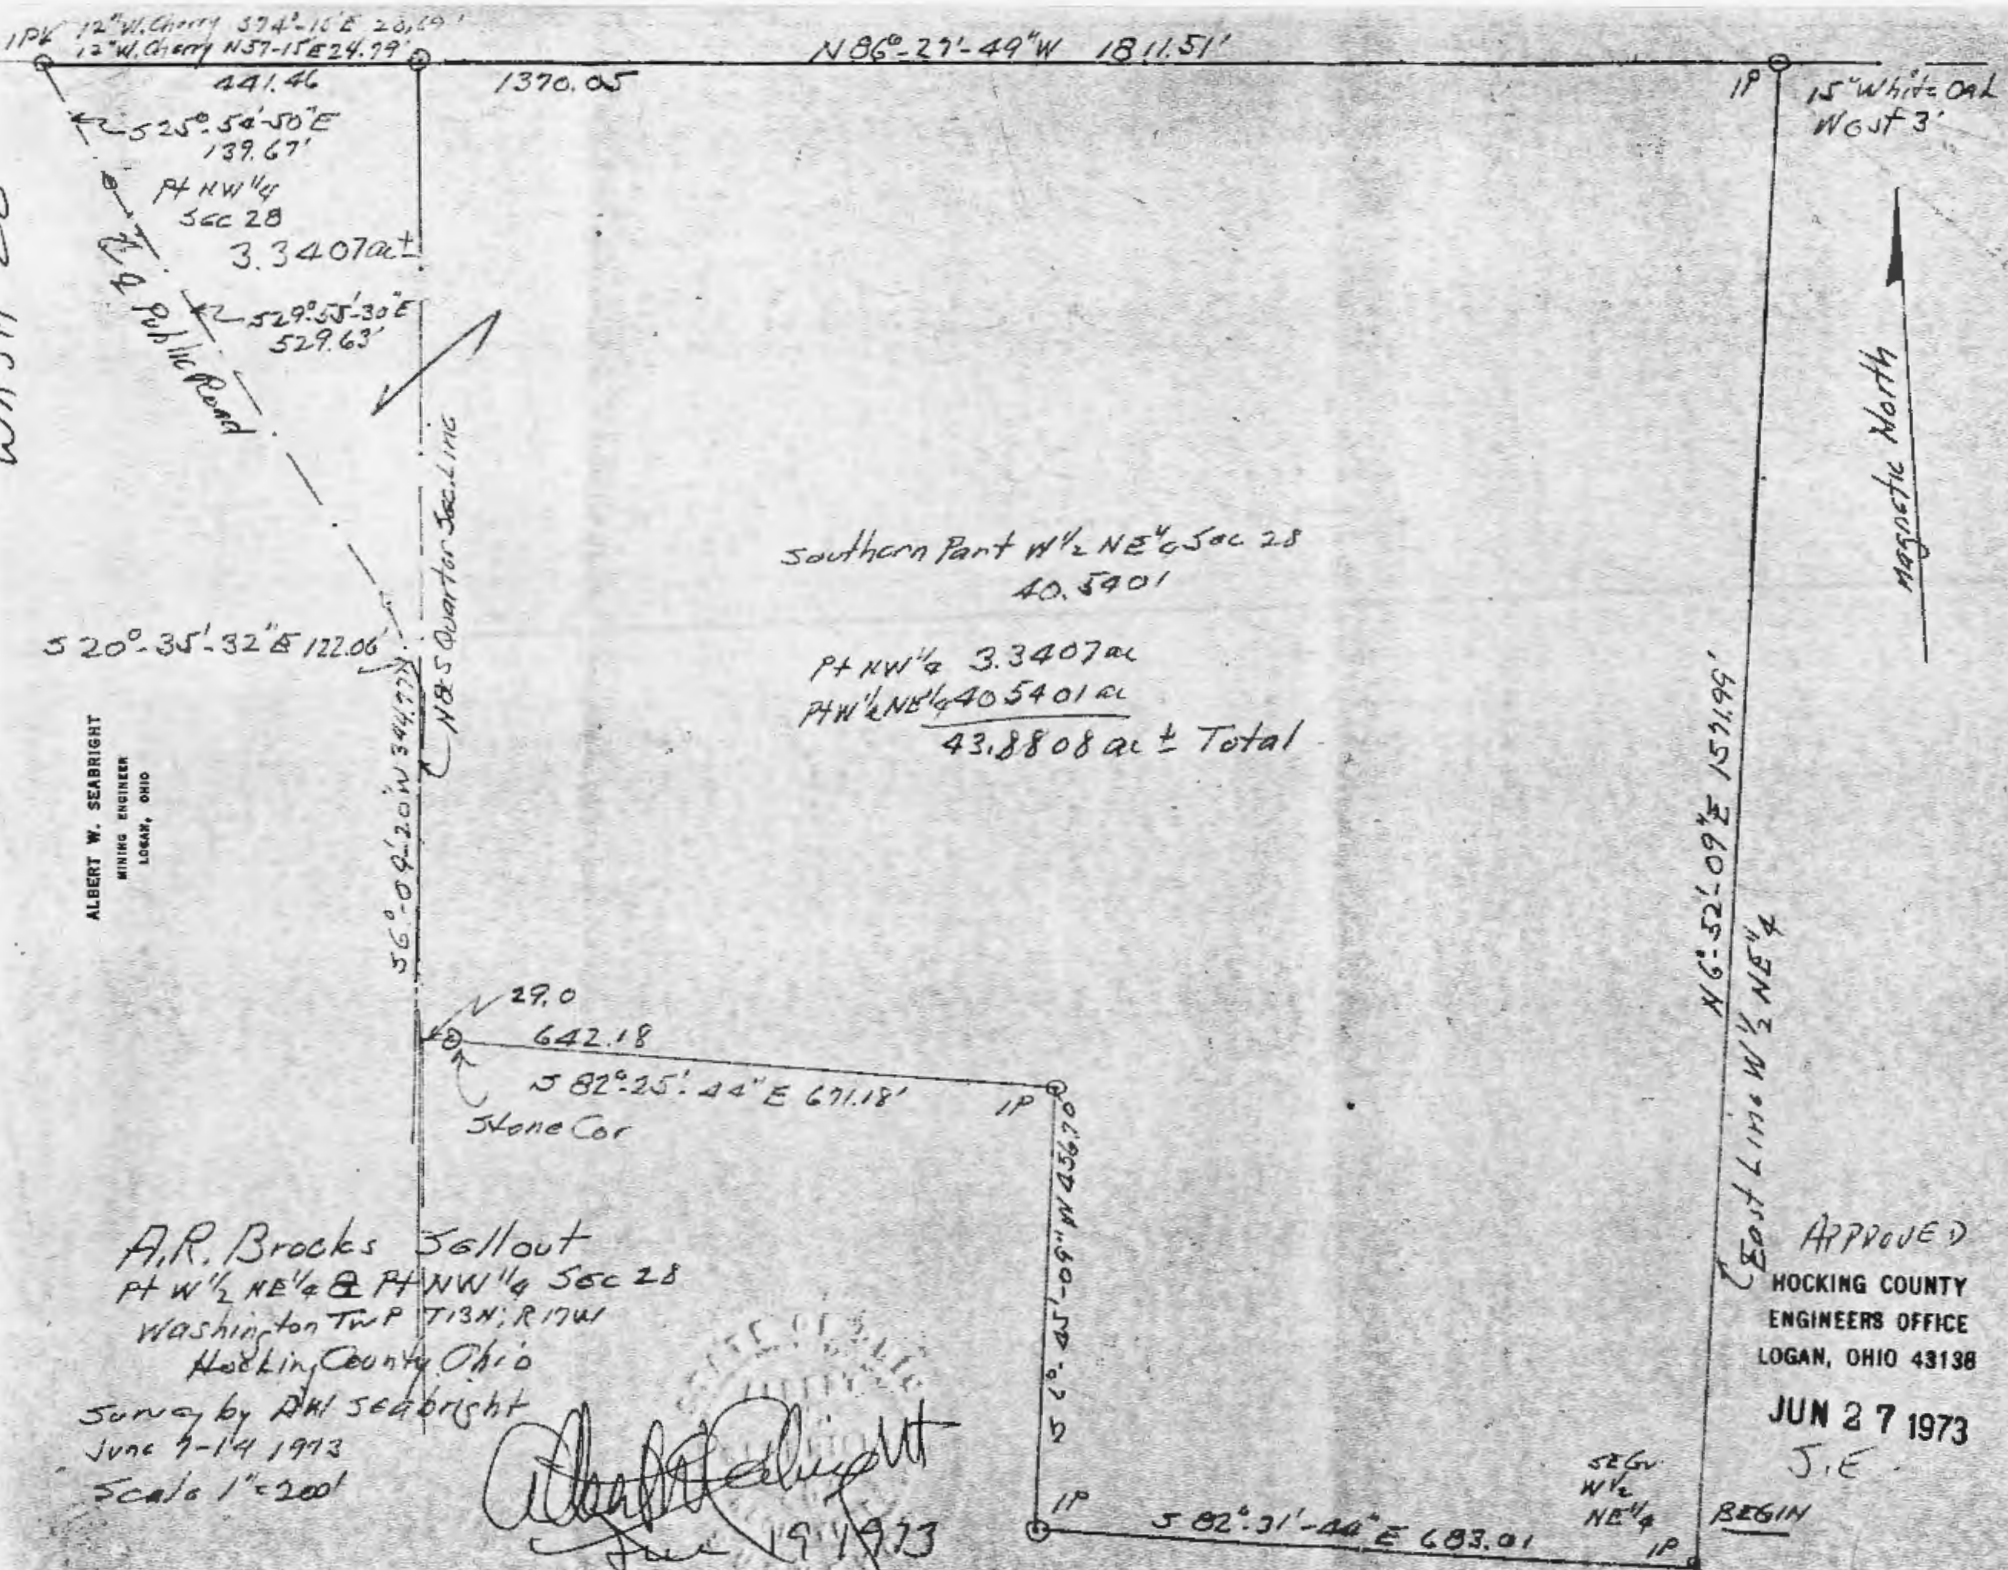 IPK 12"W.Cherry S74°-16'E 28.69'
12"W.Cherry N57-15E 24.79'
N86°-27'-49"W 1811.51'
441.46
1370.05
IP
15" White Oak
West 3'
S25°-54'-50"E
139.67'
Pt NW 1/4
Sec 28
3.3407ac±
Public Road
S29°-55'-30"E
529.63'
Magnetic North
N&S Quarter Sec. Line
Southern Part W 1/2 NE 1/4 Sec 28
40.5401
S 20°-35'-32"E 122.06'
Pt NW 1/4 3.3407ac
Pt W 1/2 NE 1/4 40.5401ac
43.8808 ac ± Total
ALBERT W. SEABRIGHT
MINING ENGINEER
LOGAN, OHIO
S6°-04'-20"W 344.77
N6°-52'-09"E 1571.99'
East Line W 1/2 NE 1/4
29.0
642.18
S 82°-25'-44"E 671.18'
IP
Stone Cor
S 6°-45'-09"W 456.70
A.R. Brooks Sellout
Pt W 1/2 NE 1/4 & Pt NW 1/4 Sec 28
Washington Twp T13N; R17W
Hocking County Ohio
Survey by AW Seabright
June 7-14 1973
Scale 1"=200'
APPROVED
HOCKING COUNTY
ENGINEERS OFFICE
LOGAN, OHIO 43138
JUN 27 1973
J.E.
Albert W Seabright
June 19 1973
IP
S 82°-31'-44"E 683.01
W 1/2
NE 1/4
IP
BEGIN